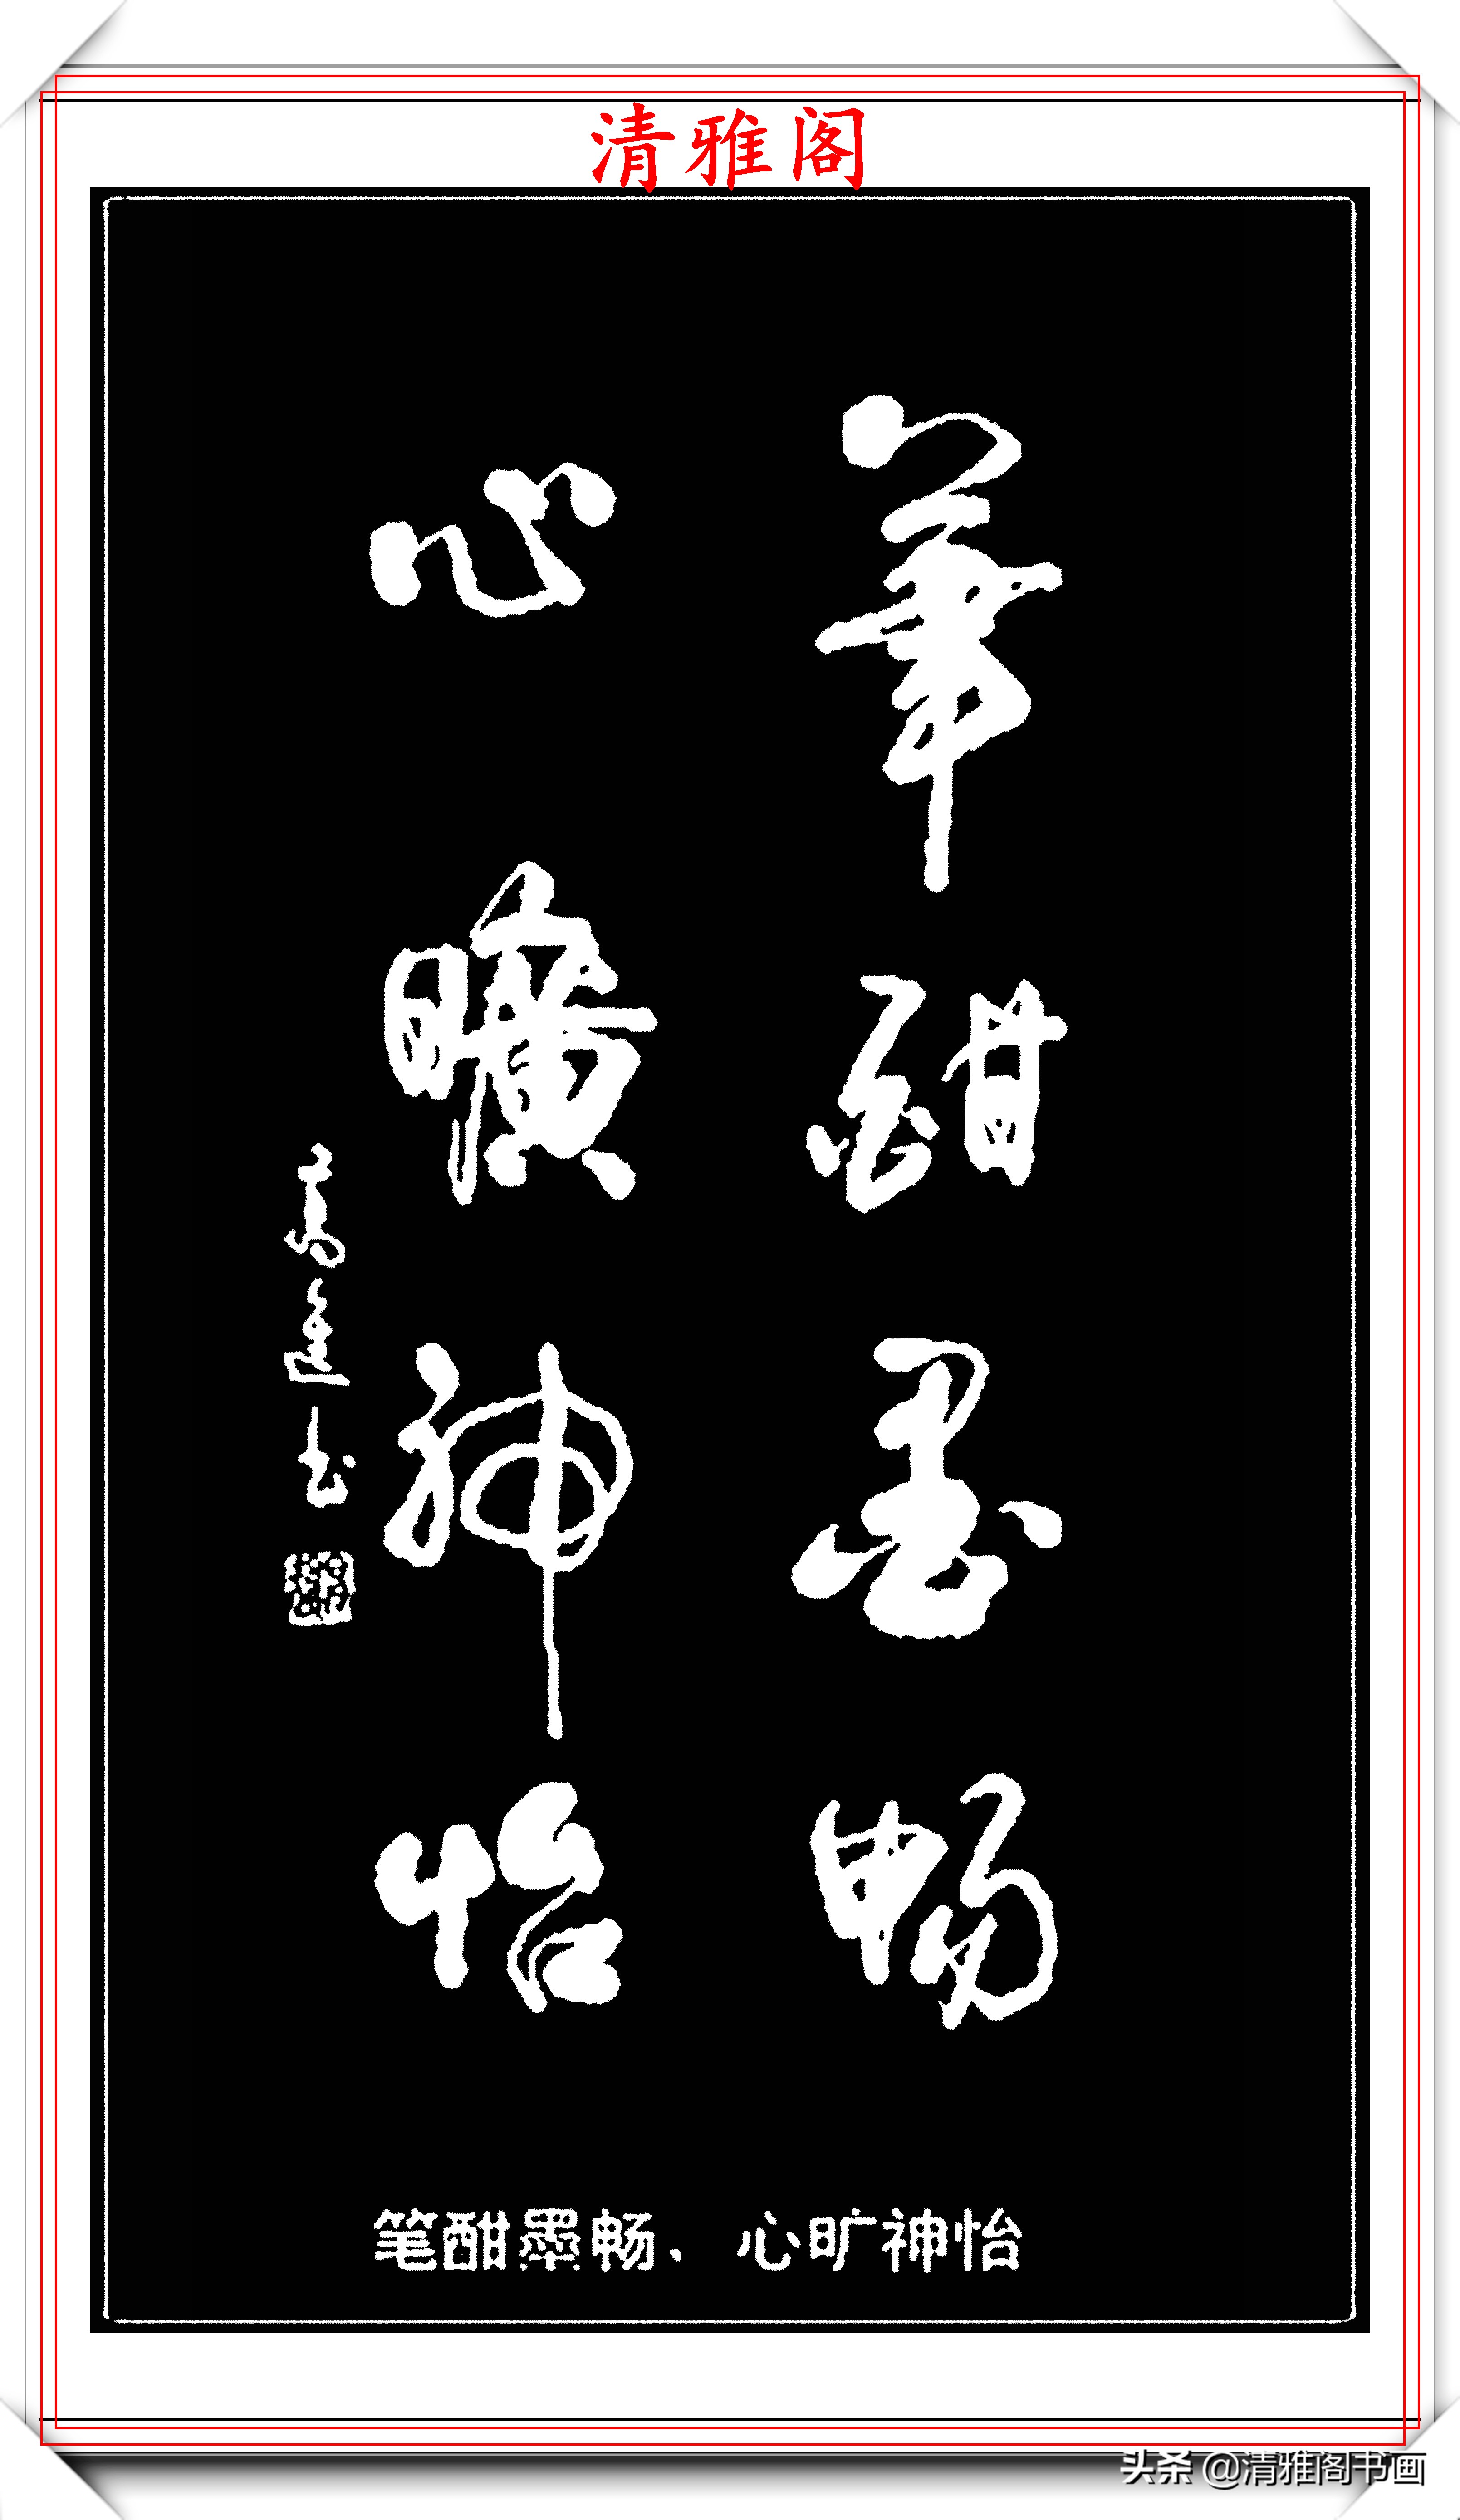 清雅阁
筆酣墨暢
心曠神怡
笔酣墨畅、心旷神怡
头条 @清雅阁书画